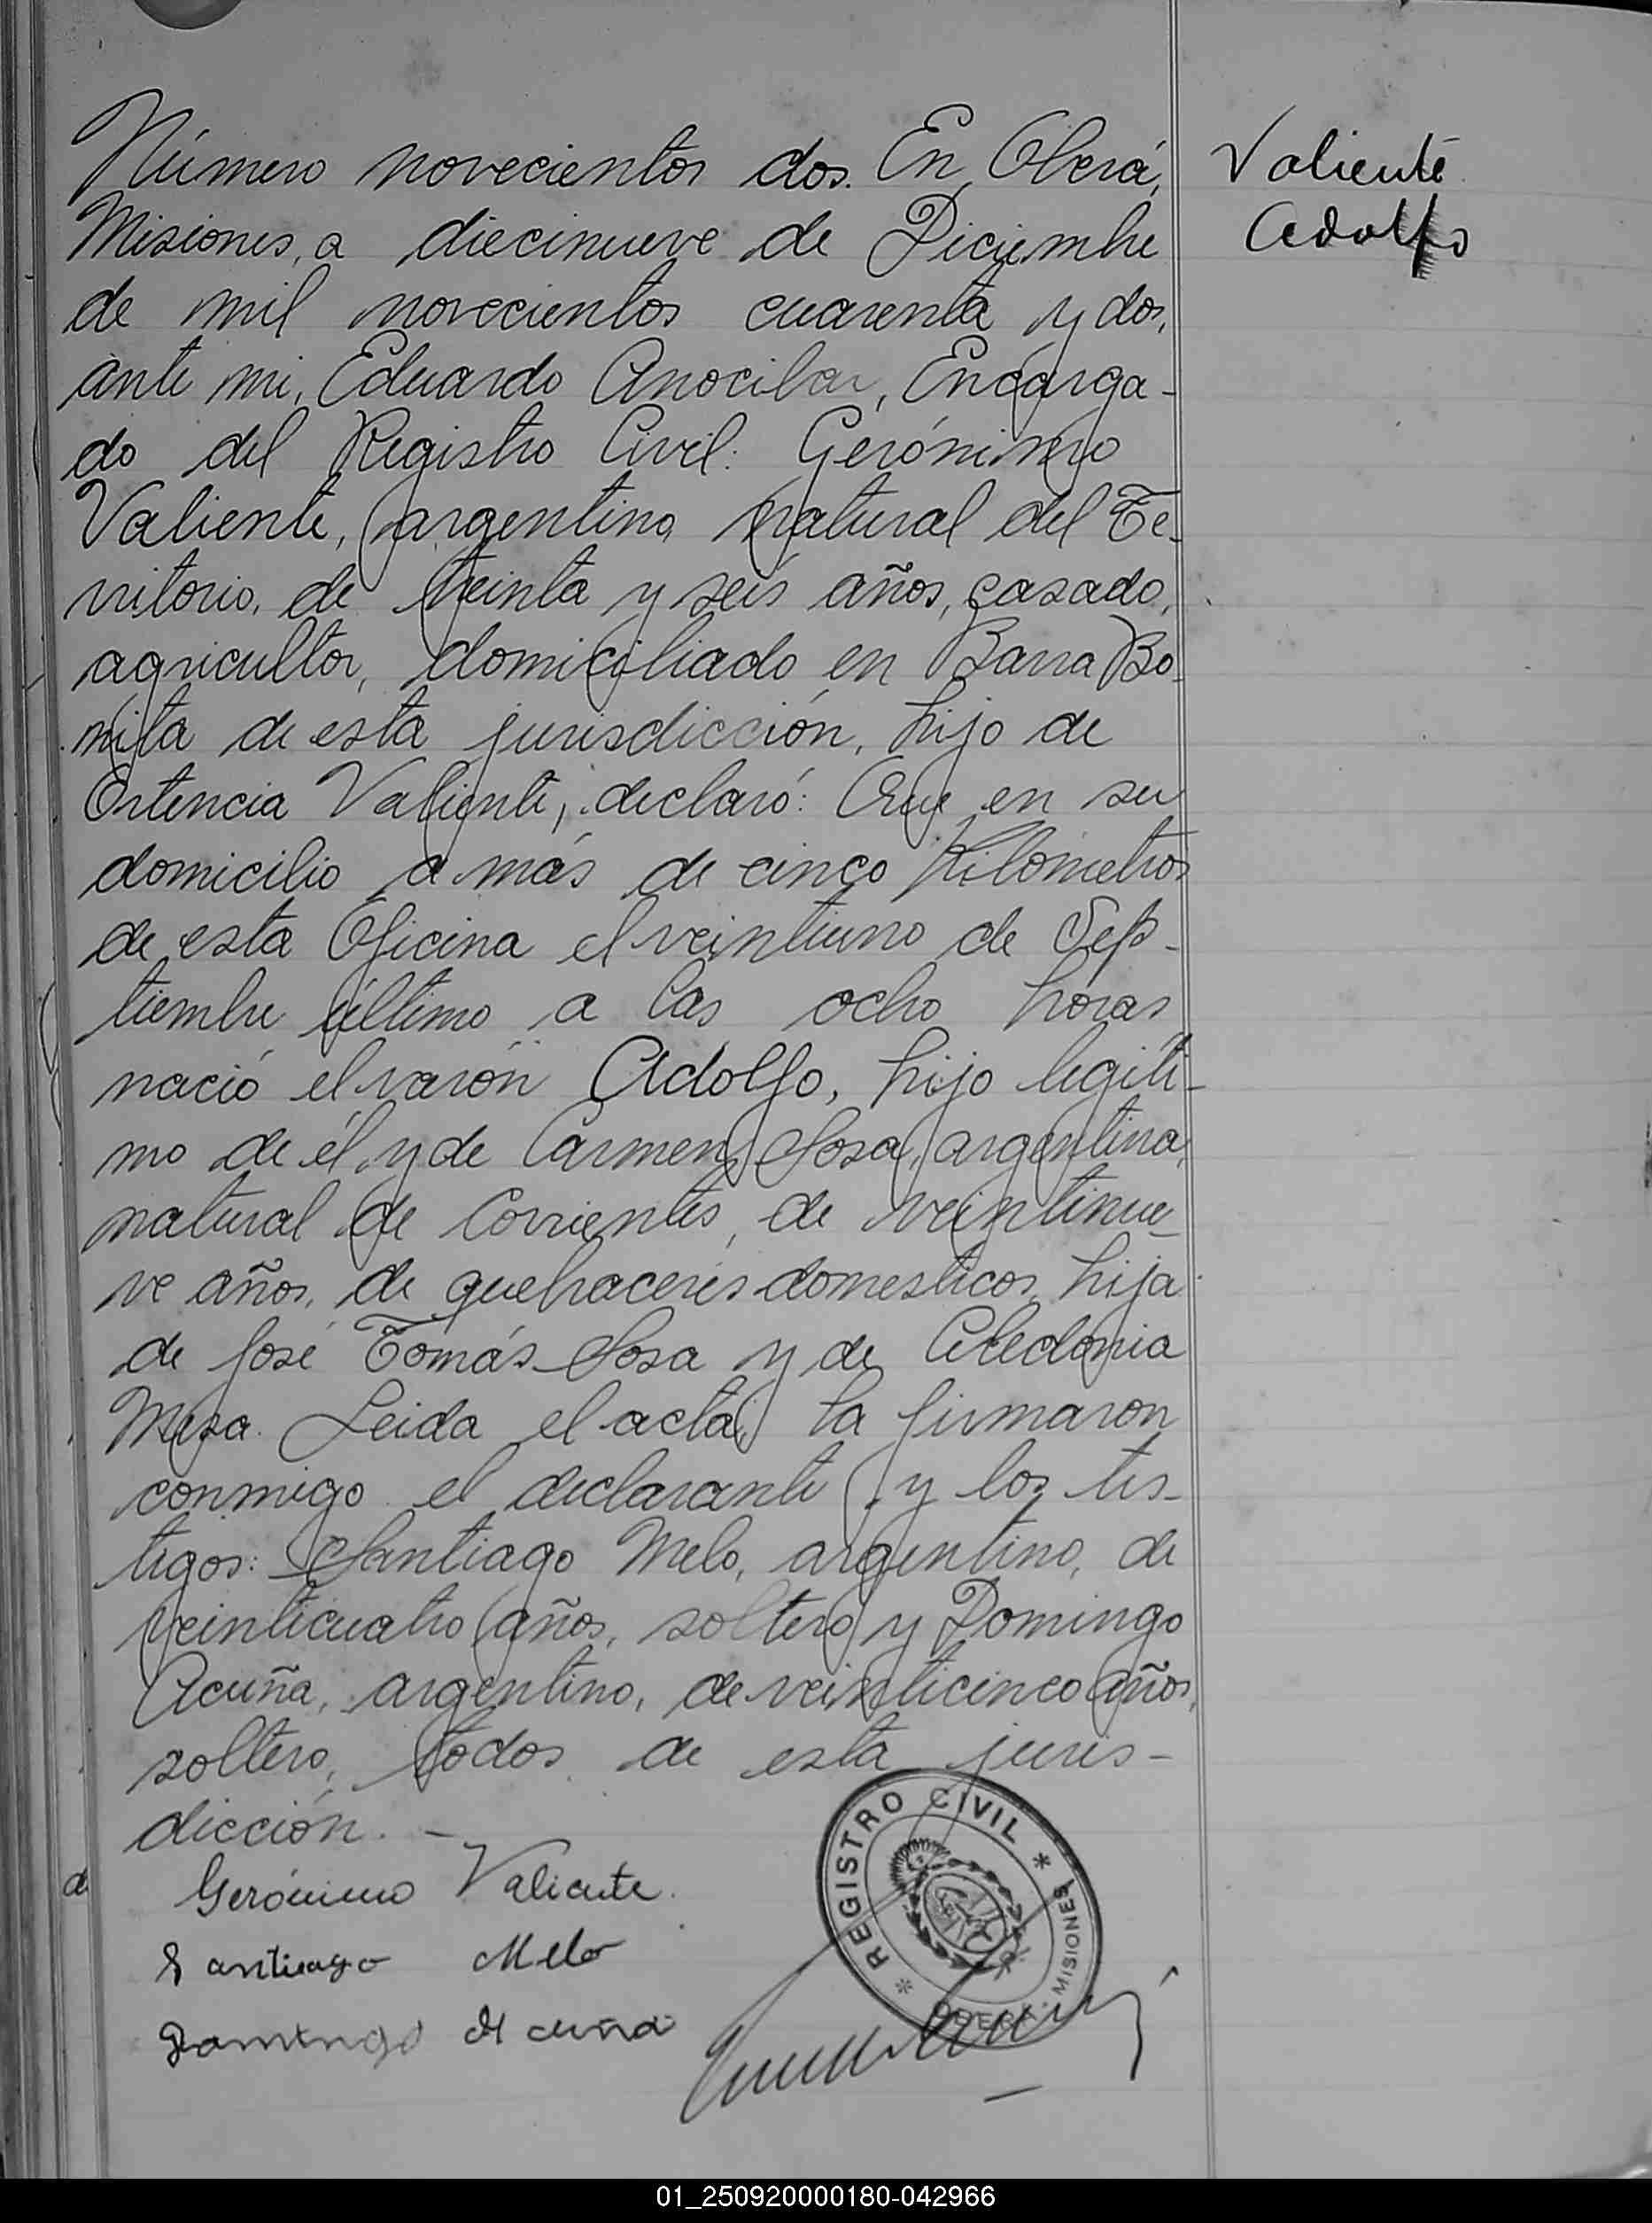 Número novecientos dos. En Oberá,
Misiones, a diecinueve de Diciembre
de mil novecientos cuarenta y dos,
ante mi, Eduardo Anocibar, Encarga-
do del Registro Civil: Gerónimo
Valiente, argentino, natural del Te-
rritorio, de treinta y seis años, casado,
agricultor, domiciliado en Barra Bo-
nita de esta jurisdicción, hijo de
Ortencia Valiente, declaró: Que en su
domicilio a más de cinco kilómetros
de esta Oficina el veintiuno de Sep-
tiembre último a las ocho horas
nació el varón Adolfo, hijo legíti-
mo de él y de Carmen Sosa, argentina,
natural de Corrientes, de veintinue-
ve años, de quehaceres domesticos, hija
de José Tomás Sosa y de Celedonia
Meza. Leida el acta, la firmaron
conmigo el declarante y los tes-
tigos: Santiago Melo, argentino, de
veinticuatro años, soltero y Domingo
Acuña, argentino, de veinticinco años,
soltero, todos de esta juris-
dicción. -
Gerónimo Valiente.
Santiago Melo
Domingo Acuña
Valiente
Adolfo
* REGISTRO CIVIL *
OBERA - MISIONES
01_250920000180-042966